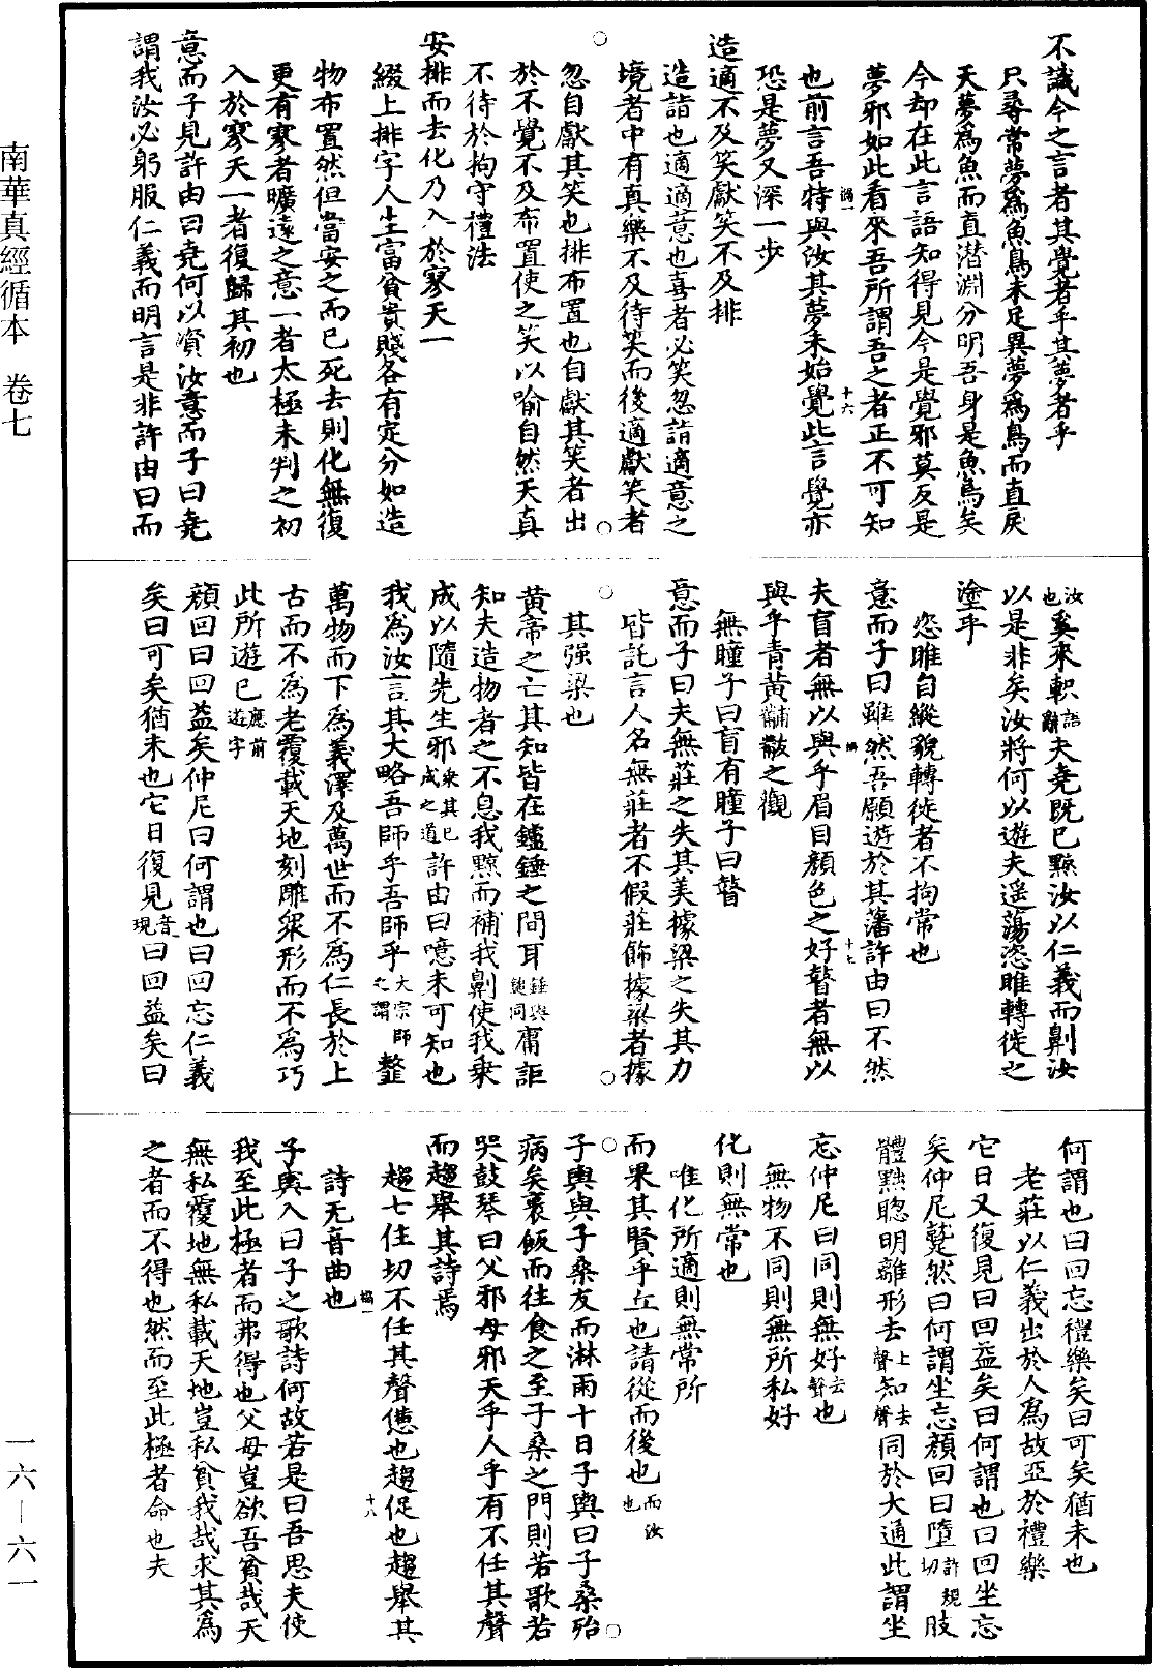 不識今之言者其覺者乎其夢者乎
只尋常夢爲魚鳥未足異夢爲鳥而直戾
天夢爲魚而直潜淵分明吾身是魚鳥矣
今却在此言語知得見今是覺邪莫反是
夢邪如此看來吾所謂吾之者正不可知
也前言吾特與汝其夢未始覺此言覺亦
恐是夢又深一步
造適不及笑獻笑不及排
造詣也適適意也喜者必笑忽詣適意之
境者中有真樂不及待笑而後適獻笑者
忽自獻其笑也排布置也自獻其笑者出
於不覺不及布置使之笑以喻自然天真
不待於拘守禮法
安排而去化乃入於寥天一
綴上排字人生富貧貴賤各有定分如造
物布置然但當安之而已死去則化無復
更有寥者曠遠之意一者太極未判之初
入於寥天一者復歸其初也
意而子見許由曰堯何以資汝意而子曰堯
謂我汝必躬服仁義而明言是非許由曰而
汝也奚來軹語辭夫堯既已黥汝以仁義而劓汝
以是非矣汝將何以遊夫遥蕩恣睢轉徙之
塗乎
恣睢自縱貌轉徙者不拘常也
意而子曰雖然吾願遊於其藩許由曰不然
夫盲者無以與乎眉目顔色之好瞽者無以
與乎青黃黼黻之觀
無瞳子曰盲有瞳子曰瞽
意而子曰夫無莊之失其美據梁之失其力
皆託言人名無莊者不假莊飾據梁者據
其强梁也
黄帝之亡其知皆在鑪錘之間耳錘與鎚同庸詎
知夫造物者之不息我黥而補我劓使我乗
成以隨先生邪乗其已成之道許由曰噫未可知也
我為汝言其大略吾師乎吾師乎大宗師之謂𩐎
萬物而下為義澤及萬世而不為仁長於上
古而不為老覆載天地刻雕衆形而不為巧
此所遊已應前遊字
顔回曰回益矣仲尼曰何謂也曰回忘仁義
矣曰可矣猶未也它日復見音現曰回益矣曰
何謂也曰回忘禮樂矣曰可矣猶未也
老莊以仁義出於人爲故亞於禮樂
它日又復見曰回益矣曰何謂也曰回坐忘
矣仲尼蹵然曰何謂坐忘顔回曰墮許規切肢
體黜聰明離形去上聲知去聲同於大通此謂坐
忘仲尼曰同則無好去聲也
無物不同則無所私好
化則無常也
唯化所適則無常所
而果其賢乎丘也請從而後也而汝也
子輿與子桑友而淋雨十日子輿曰子桑殆
病矣裹飯而往食之至子桑之門則若歌若
哭鼓琴曰父邪母邪天乎人乎有不任其聲
而趨舉其詩焉
趨七住切不任其聲憊也趨促也趨舉其
詩无音曲也
子輿入曰子之歌詩何故若是曰吾思夫使
我至此極者而弗得也父母豈欲吾貧哉天
無私覆地無私載天地豈私貧我哉求其為
之者而不得也然而至此極者命也夫
南華真經循本　卷七
一六—六一